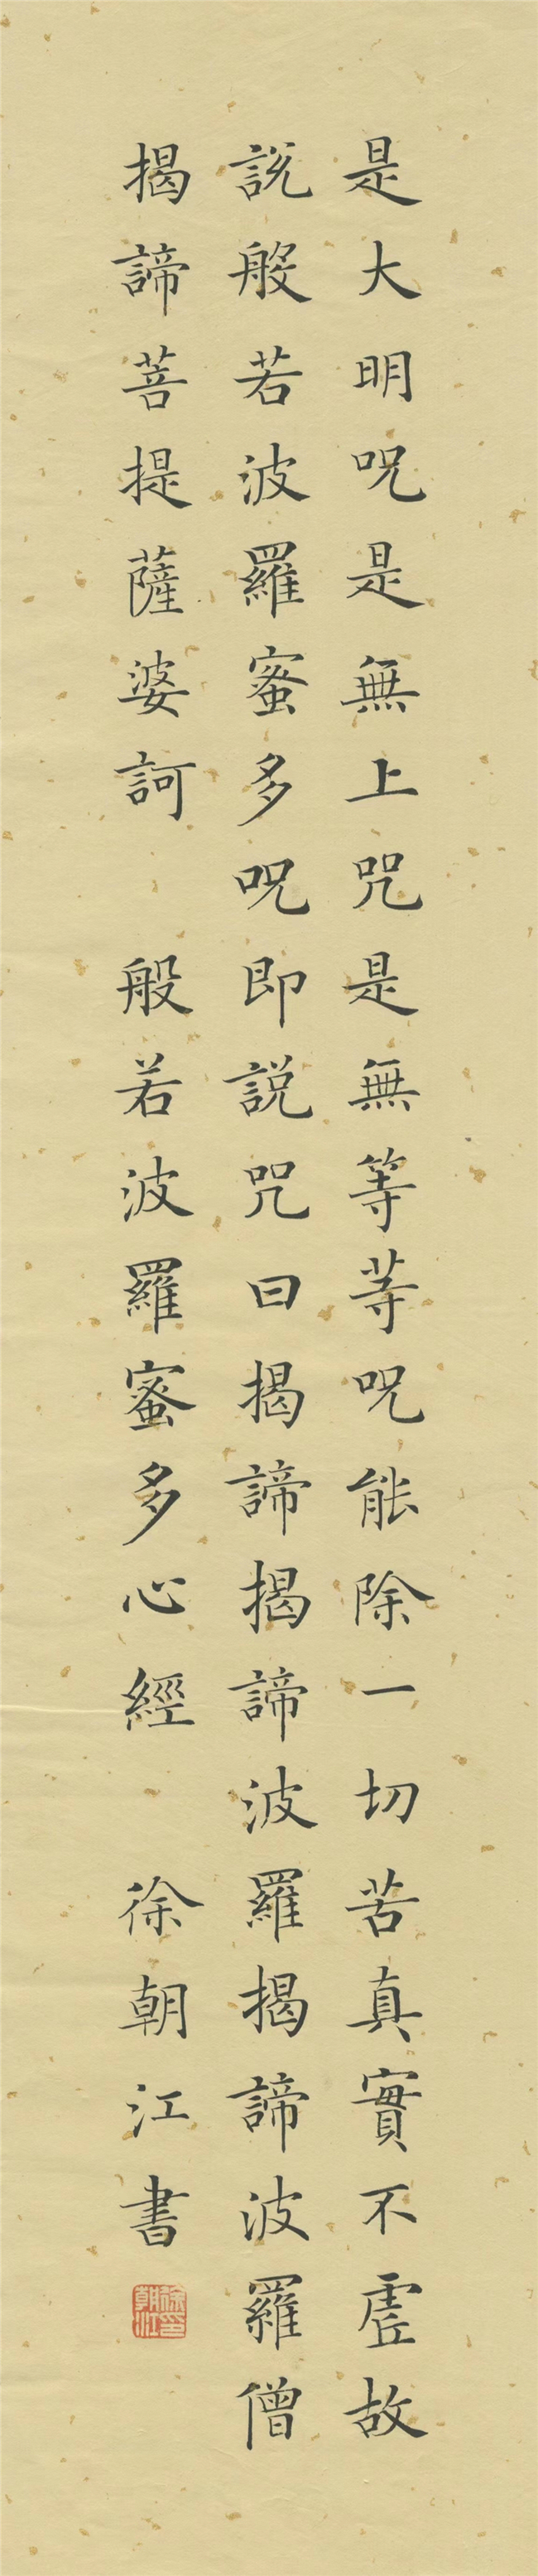 是大明呪是無上咒是無等等呪能除一切苦真實不虛故
說般若波羅蜜多呪即說咒曰揭諦揭諦波羅揭諦波羅僧
揭諦菩提薩婆訶 般若波羅蜜多心經 徐朝江書
徐朝江印